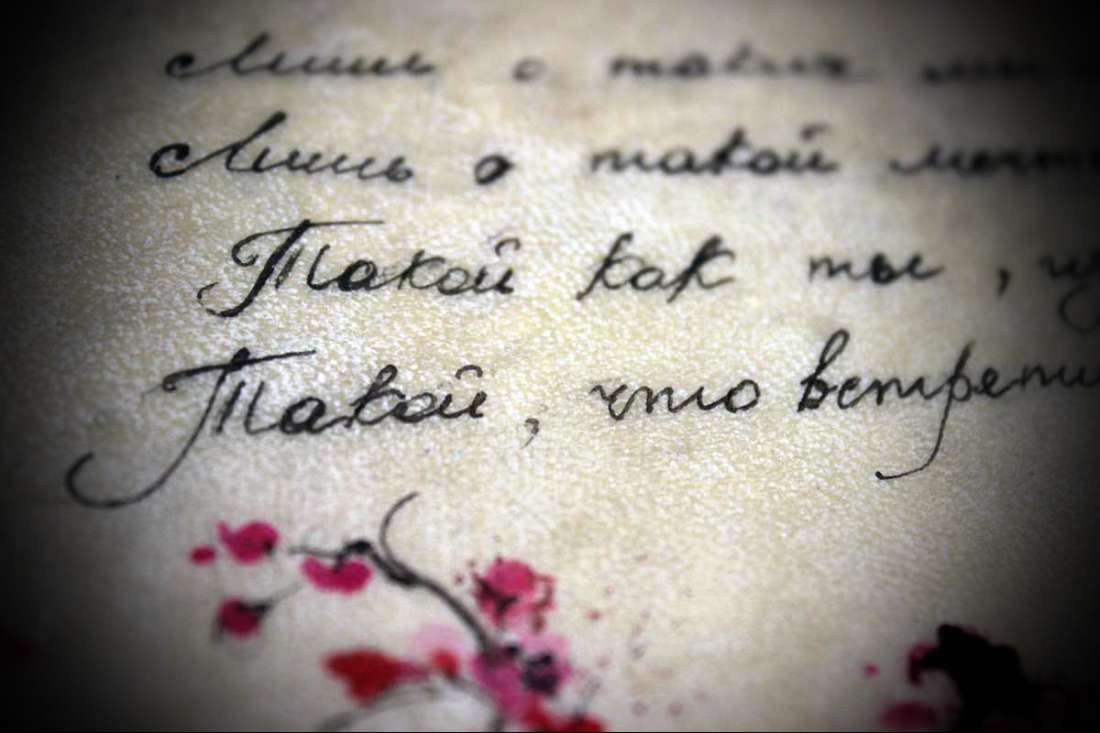 Лишь о таких
Лишь о такой
Такой как ты,
Такой, что